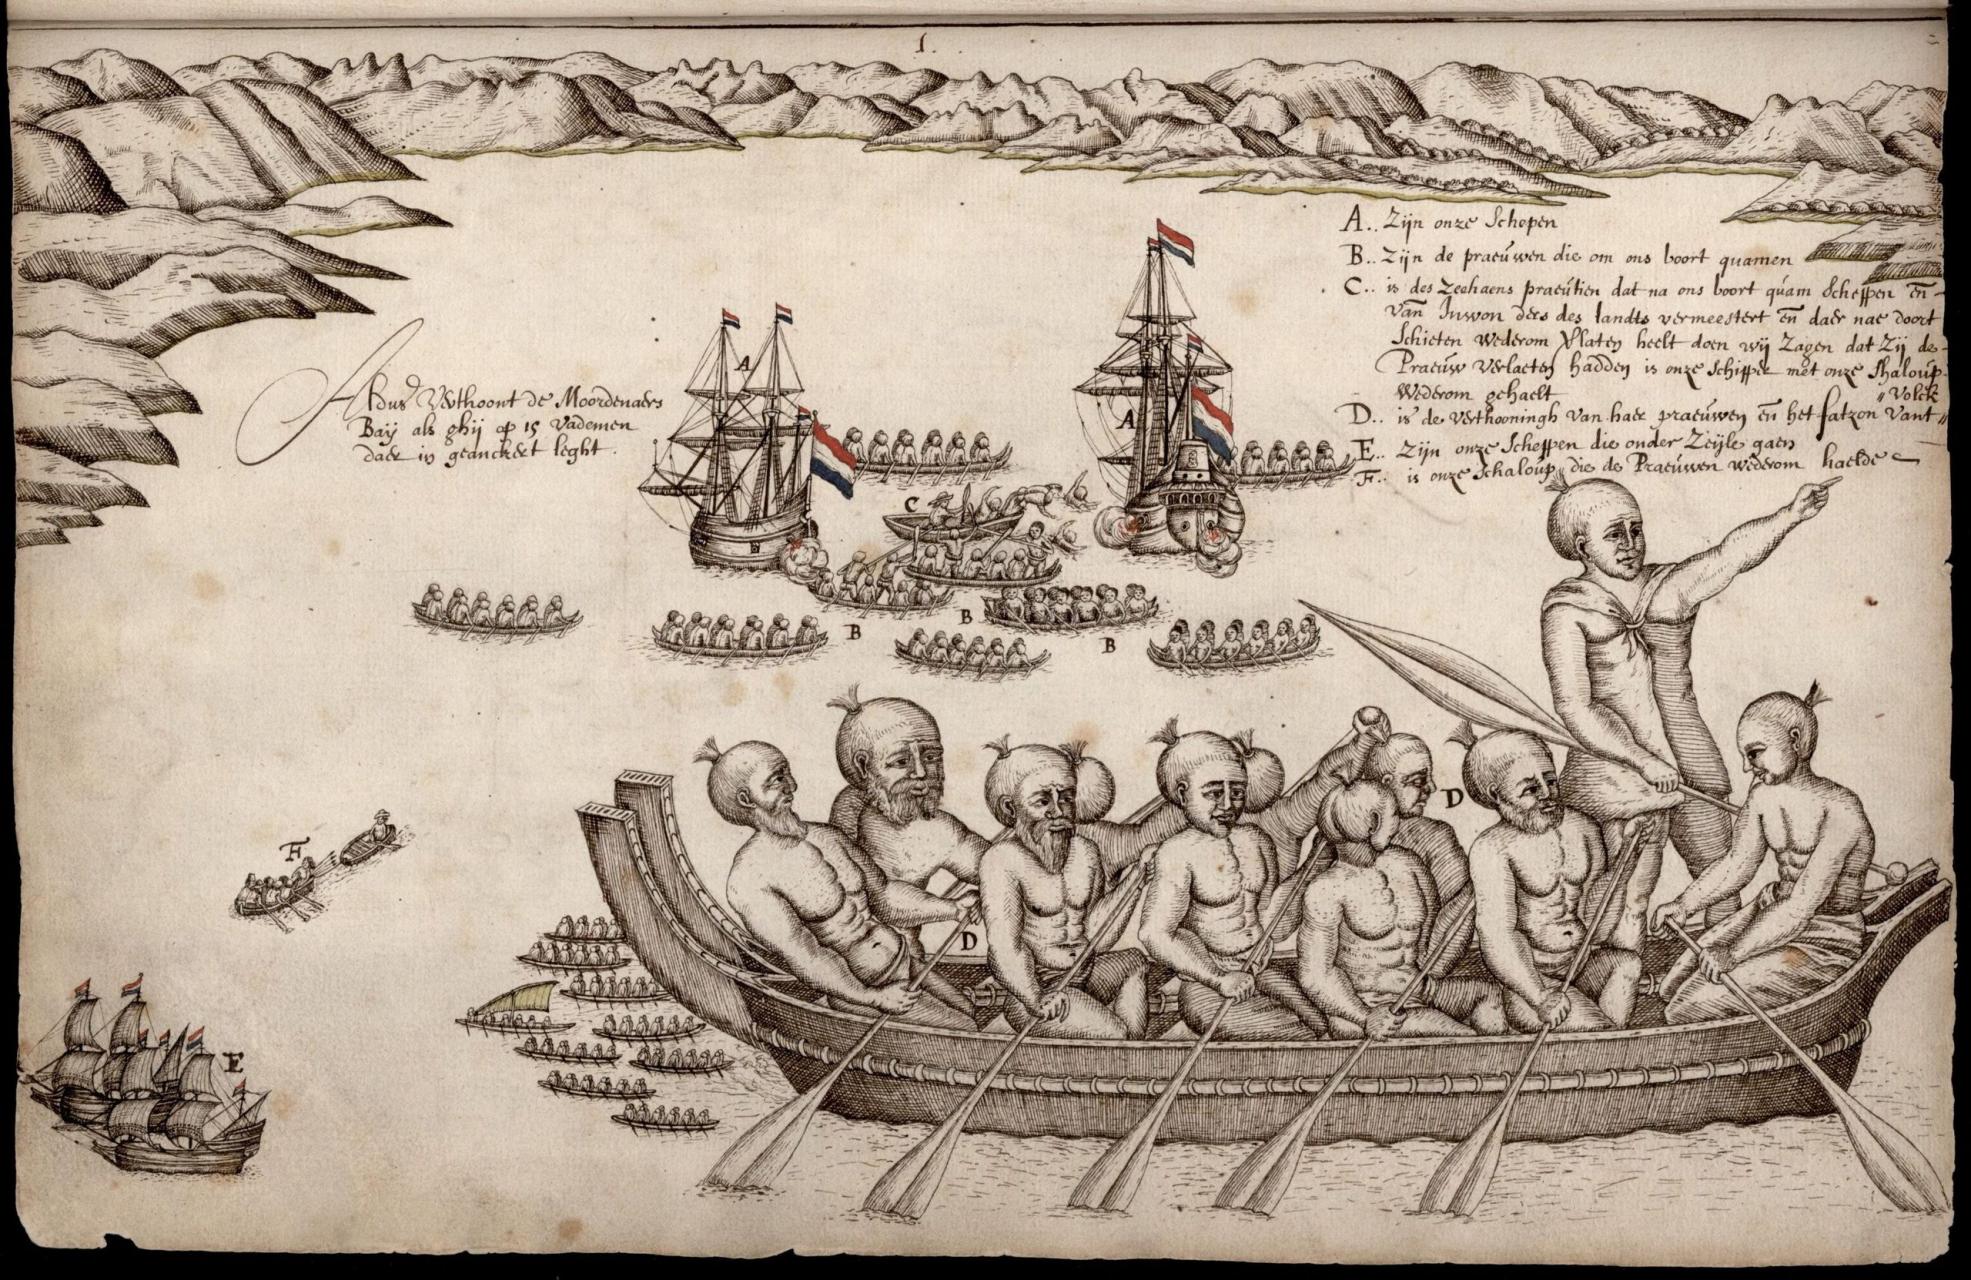 1.
A.. Zijn onze Schepen
B.. Zijn de praeuwen die om ons boort quamen
C.. is des Zeehaens praeutien dat na ons boort quam Scheppen en
van Inwon ders des landts vermeestert en daer nae doort
Schieten wederom Verlaten heelt doen wij Zagen dat Zij de
Praeuw verlaeten hadden is onze Schipper met onze Shaloup
wederom gehaelt
D.. is de verthooningh van haer praeuwen en het fatzon vant
"Volck
E.. Zijn onze Scheppen die onder Zeijle gaen
F.. is onze Schaloup die de Praeuwen wederom haelde
Aldus Verthoont de Moordenaers
Baij als ghij op 15 Vademen
daer in geanckert leght.
A
A
C
B
B
B
D
D
F
E